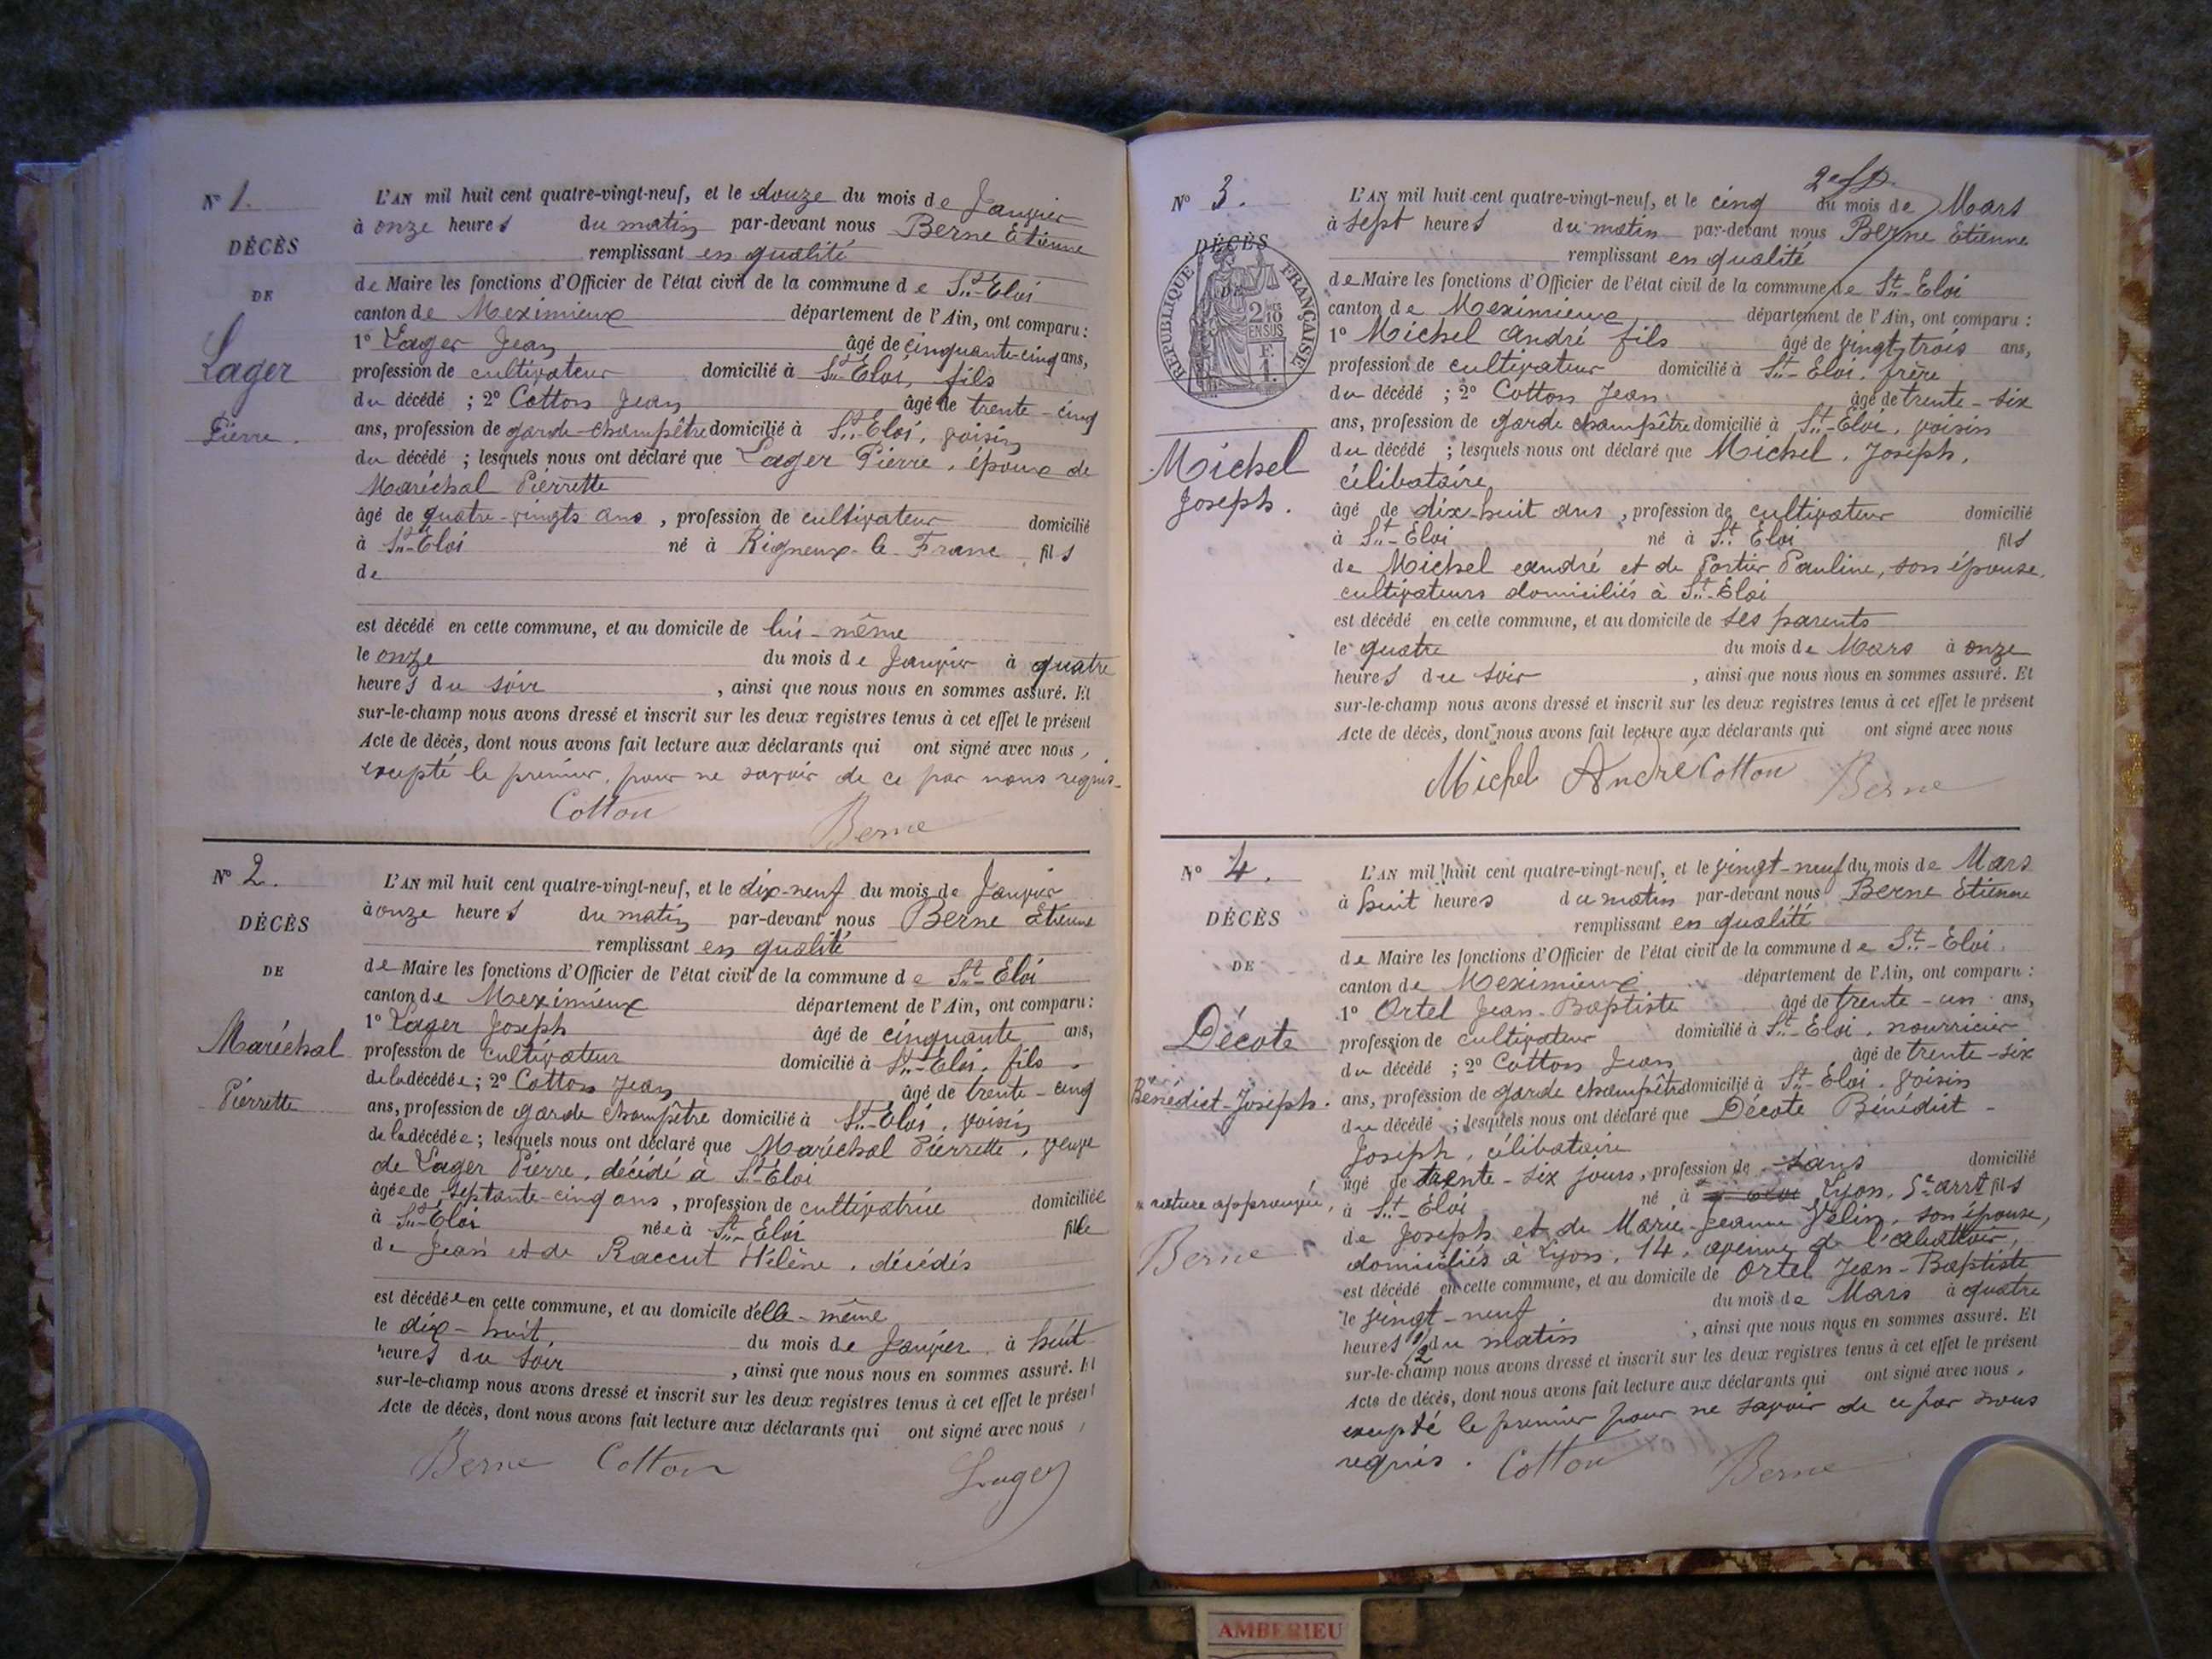 N° 1.
DÉCÈS
DE
Lager
Pierre.
L'AN mil huit cent quatre-vingt-neuf, et le douze du mois de Janvier
à onze heures du matin par-devant nous Berne Etienne
remplissant en qualité
de Maire les fonctions d'Officier de l'état civil de la commune de St-Eloi
canton de Meximieux département de l'Ain, ont comparu :
1° Lager Jean âgé de cinquante-cinq ans,
profession de cultivateur domicilié à St-Eloi, fils
du décédé ; 2° Cotton Jean âgé de trente-cinq
ans, profession de garde-champêtre domicilié à St-Eloi, voisin
du décédé ; lesquels nous ont déclaré que Lager Pierre, époux de
Maréchal Pierrette
âgé de quatre-vingts ans, profession de cultivateur domicilié
à St-Eloi né à Rigneux-le-Franc fils
de
est décédé en cette commune, et au domicile de lui-même
le onze du mois de Janvier à quatre
heures du soir, ainsi que nous nous en sommes assuré. Et
sur-le-champ nous avons dressé et inscrit sur les deux registres tenus à cet effet le présent
Acte de décès, dont nous avons fait lecture aux déclarants qui ont signé avec nous,
excepté le premier, pour ne savoir de ce par nous requis.
Cotton Berne
N° 2.
DÉCÈS
DE
Maréchal
Pierrette
L'AN mil huit cent quatre-vingt-neuf, et le dix-neuf du mois de Janvier
à onze heures du matin par-devant nous Berne Etienne
remplissant en qualité
de Maire les fonctions d'Officier de l'état civil de la commune de St-Eloi
canton de Meximieux département de l'Ain, ont comparu :
1° Lager Joseph âgé de cinquante ans,
profession de cultivateur domicilié à St-Eloi, fils
de la décédée ; 2° Cotton Jean âgé de trente-cinq
ans, profession de garde champêtre domicilié à St-Eloi, voisin
de la décédée ; lesquels nous ont déclaré que Maréchal Pierrette, veuve
de Lager Pierre, décédé à St-Eloi
âgée de septante-cinq ans, profession de cultivatrice domiciliée
à St-Eloi née à St-Eloi fille
de Jean et de Raccut Hélène, décédés
est décédée en cette commune, et au domicile d'elle-même
le dix-huit, du mois de Janvier à huit
heures du soir, ainsi que nous nous en sommes assuré. Et
sur-le-champ nous avons dressé et inscrit sur les deux registres tenus à cet effet le présent
Acte de décès, dont nous avons fait lecture aux déclarants qui ont signé avec nous,
Berne Cotton Lager
N° 3.
DÉCÈS
DE
RÉPUBLIQUE FRANÇAISE
2/10 EN SUS
Michel
Joseph.
L'AN mil huit cent quatre-vingt-neuf, et le cinq du mois de Mars
à sept heures du matin par-devant nous Berne Etienne
remplissant en qualité
de Maire les fonctions d'Officier de l'état civil de la commune de St-Eloi
canton de Meximieux département de l'Ain, ont comparu :
1° Michel André fils âgé de vingt-trois ans,
profession de cultivateur domicilié à St-Eloi, frère
du décédé ; 2° Cotton Jean âgé de trente-six
ans, profession de garde champêtre domicilié à St-Eloi, voisin
du décédé ; lesquels nous ont déclaré que Michel, Joseph,
célibataire,
âgé de dix-huit ans, profession de cultivateur domicilié
à St-Eloi né à St Eloi fils
de Michel André et de Portier Pauline, son épouse,
cultivateurs domiciliés à St-Eloi
est décédé en cette commune, et au domicile de ses parents
le quatre du mois de Mars à onze
heures du soir, ainsi que nous nous en sommes assuré. Et
sur-le-champ nous avons dressé et inscrit sur les deux registres tenus à cet effet le présent
Acte de décès, dont nous avons fait lecture aux déclarants qui ont signé avec nous
Michel André Cotton Berne
N° 4.
DÉCÈS
DE
Décote
Bénédict-Joseph.
rature approuvée,
Berne
L'AN mil huit cent quatre-vingt-neuf, et le vingt-neuf du mois de Mars
à huit heures du matin par-devant nous Berne Etienne
remplissant en qualité
de Maire les fonctions d'Officier de l'état civil de la commune de St-Eloi,
canton de Meximieux département de l'Ain, ont comparu :
1° Ortel Jean-Baptiste âgé de trente-un ans,
profession de cultivateur domicilié à St-Eloi, nourricier
du décédé ; 2° Cotton Jean âgé de trente-six
ans, profession de garde champêtre domicilié à St-Eloi, voisin
du décédé ; lesquels nous ont déclaré que Décote Bénédict-
Joseph, célibataire
âgé de trente-six jours, profession de sans domicilié
à St-Eloi né à Lyon, 5e arrt fils
de Joseph et de Marie-Jeanne Vélin, son épouse,
domiciliés à Lyon, 14, avenue de l'abattoir,
est décédé en cette commune, et au domicile de Ortel Jean-Baptiste
le vingt-neuf du mois de Mars à quatre
heures 1/2 du matin, ainsi que nous nous en sommes assuré. Et
sur-le-champ nous avons dressé et inscrit sur les deux registres tenus à cet effet le présent
Acte de décès, dont nous avons fait lecture aux déclarants qui ont signé avec nous,
excepté le premier pour ne savoir de ce par nous
requis. Cotton Berne
AMBERIEU